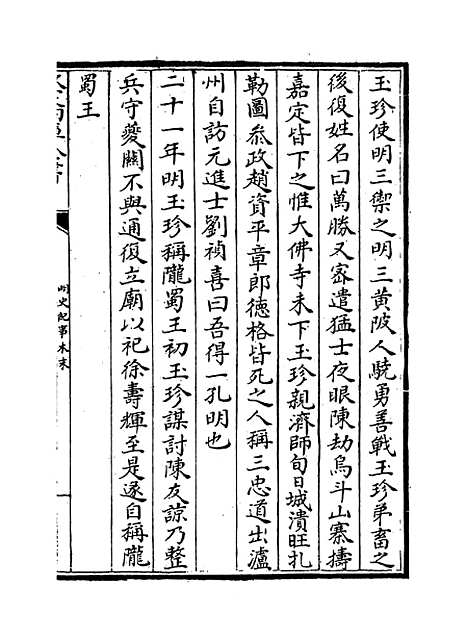 玉珍使明三禦之明三黄陂人驍勇善戰玉珍弟畜之
後復姓名曰萬勝又宻遣猛士夜眼陳劫烏斗山寨擣
嘉定皆下之惟大佛寺未下玉珍親濟師旬日城潰旺扎
勒圖叅政趙資平章郎德格皆死之人稱三忠道出瀘
州自訪元進士劉禎喜曰吾得一孔明也
二十一年明玉珍稱隴蜀王初玉珍謀討陳友諒乃整
兵守夔關不與通復立廟以祀徐壽輝至是遂自稱隴
蜀王
明史紀事本末